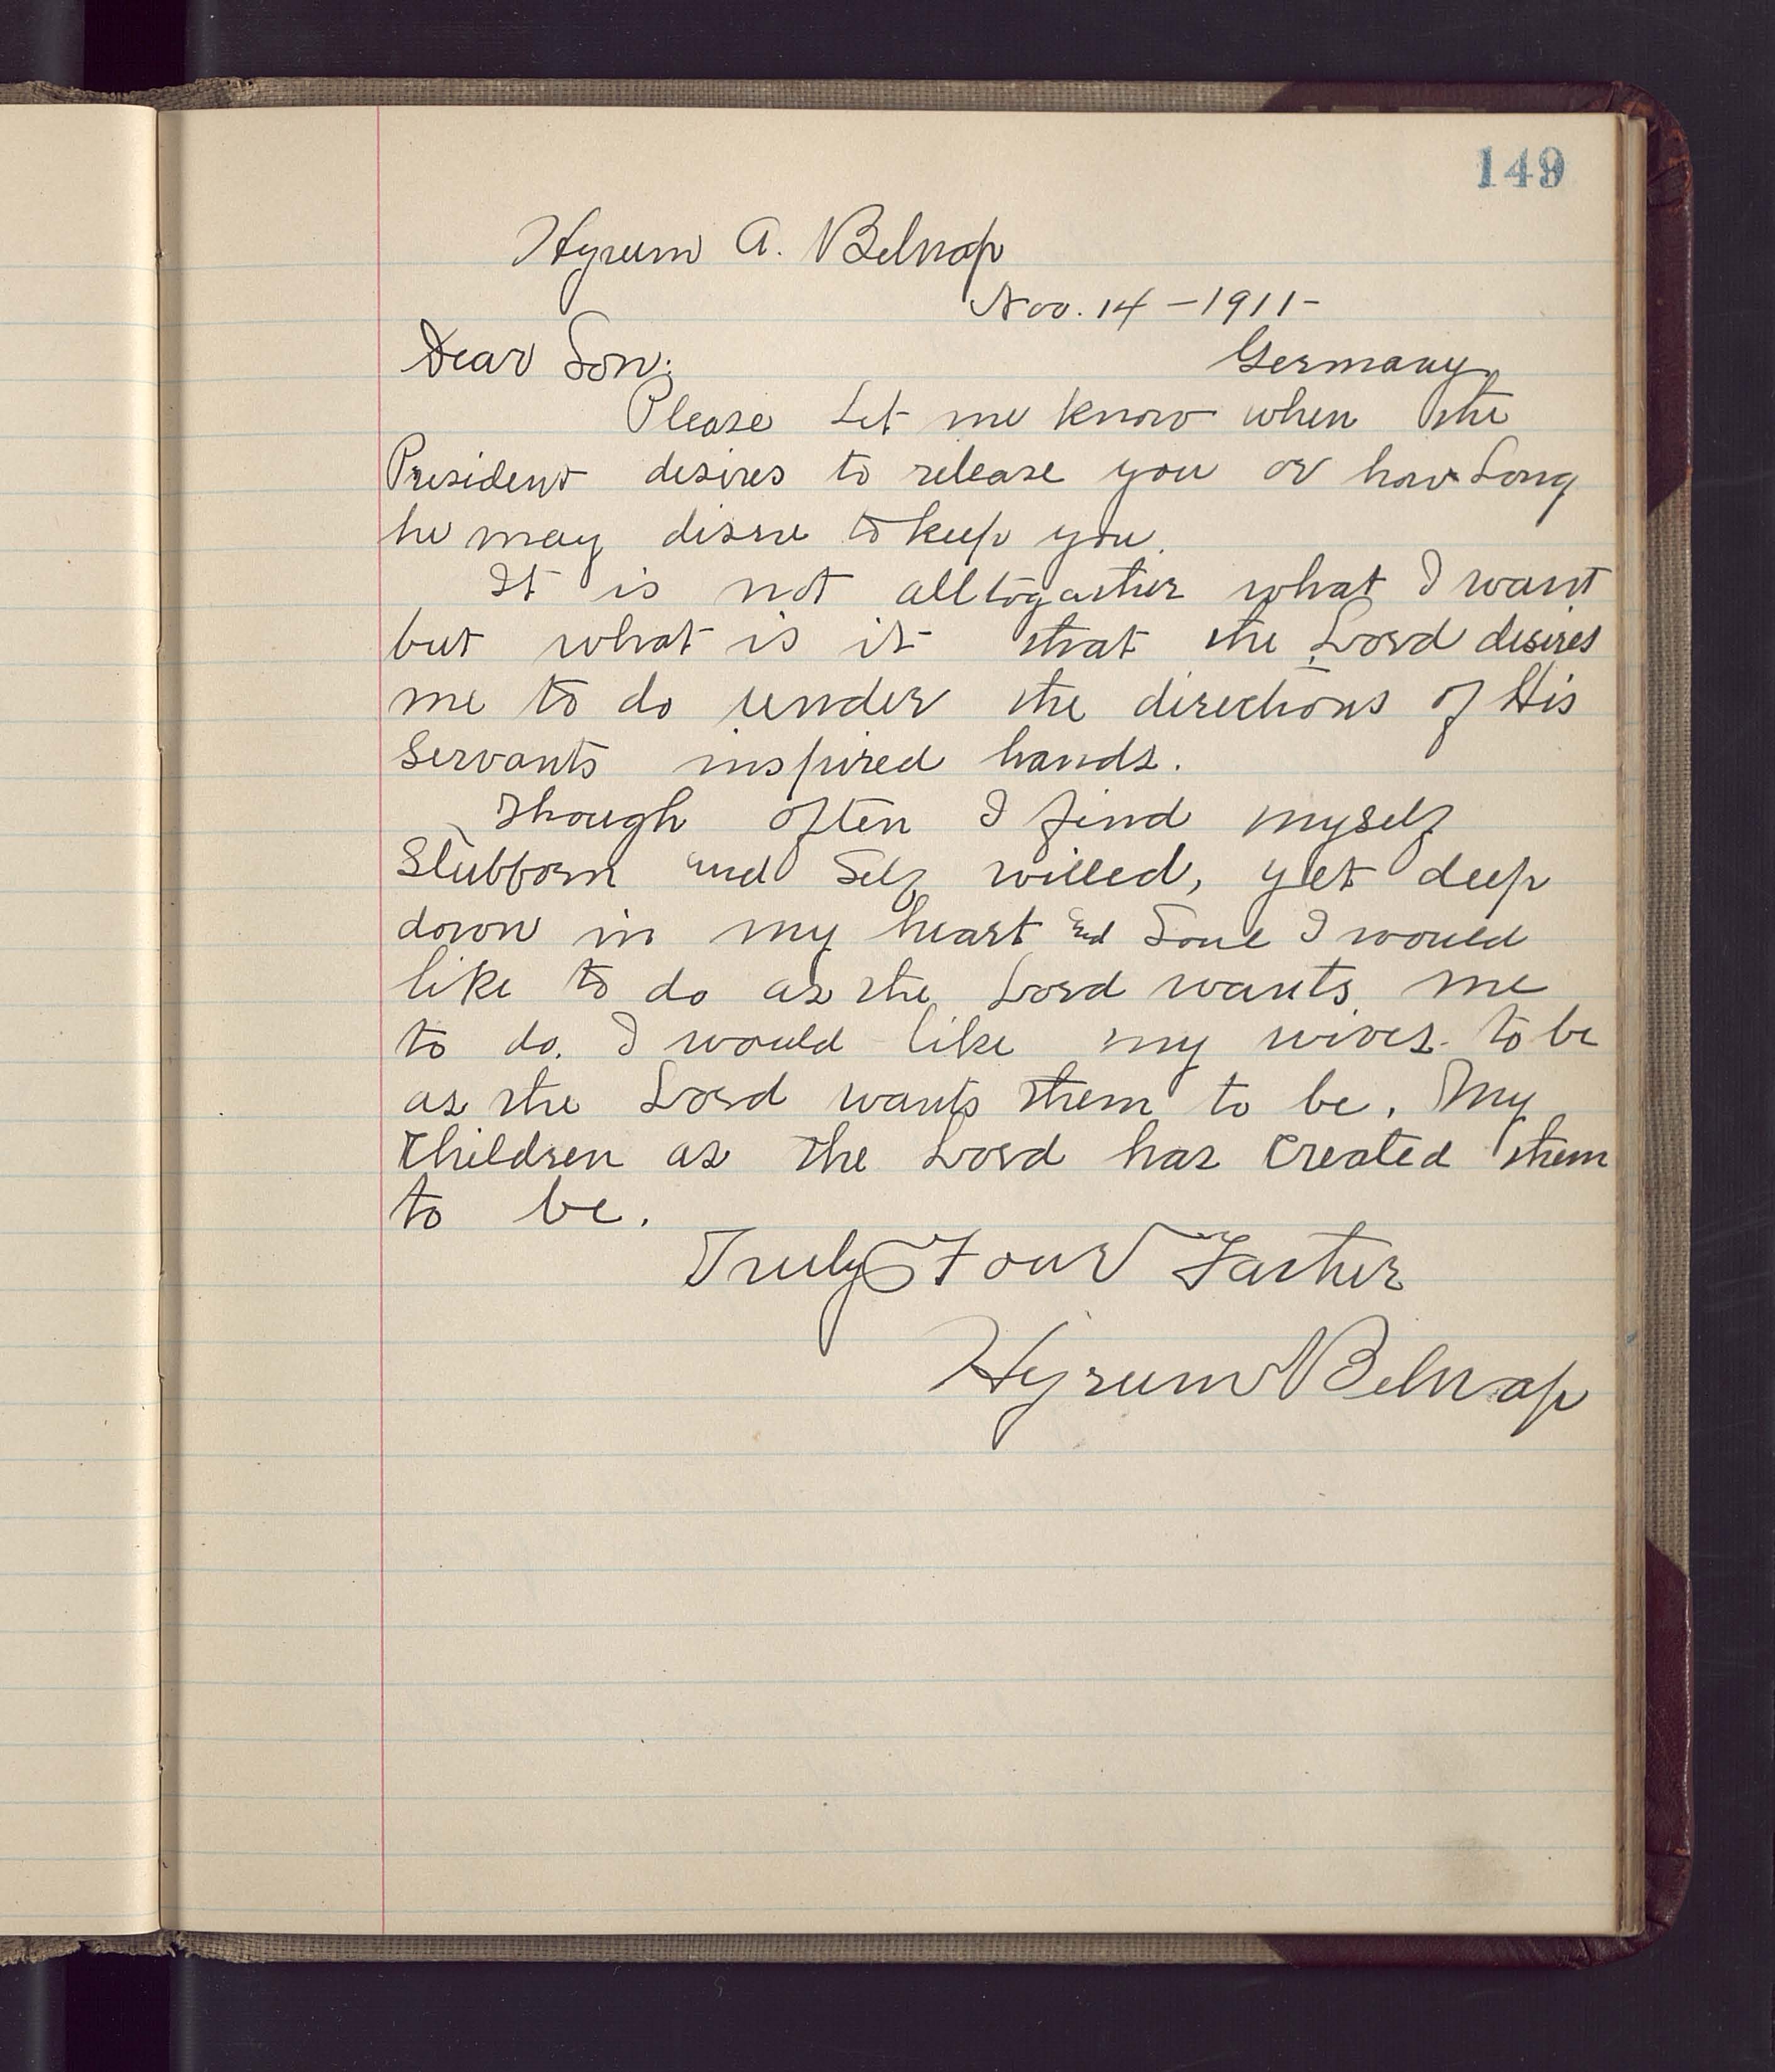 149
Hyrum A. Belnap
Nov. 14 - 1911 -
Dear Son: Germany
Please Let me know when the
President desires to release you or how Long
he may disire to keep you.
It is not alltogather what I want
but what is it that the Lord desires
me to do under the directions of His
Servants inspired hands.
Though often I find myself
Stubborn and Self willed, yet deep
down in my heart and Soul I would
like to do as the Lord wants me
to do. I would like my wives to be
as the Lord wants them to be. My
Children as the Lord has Created them
to be.
Truly Your Father
Hyrum Belnap